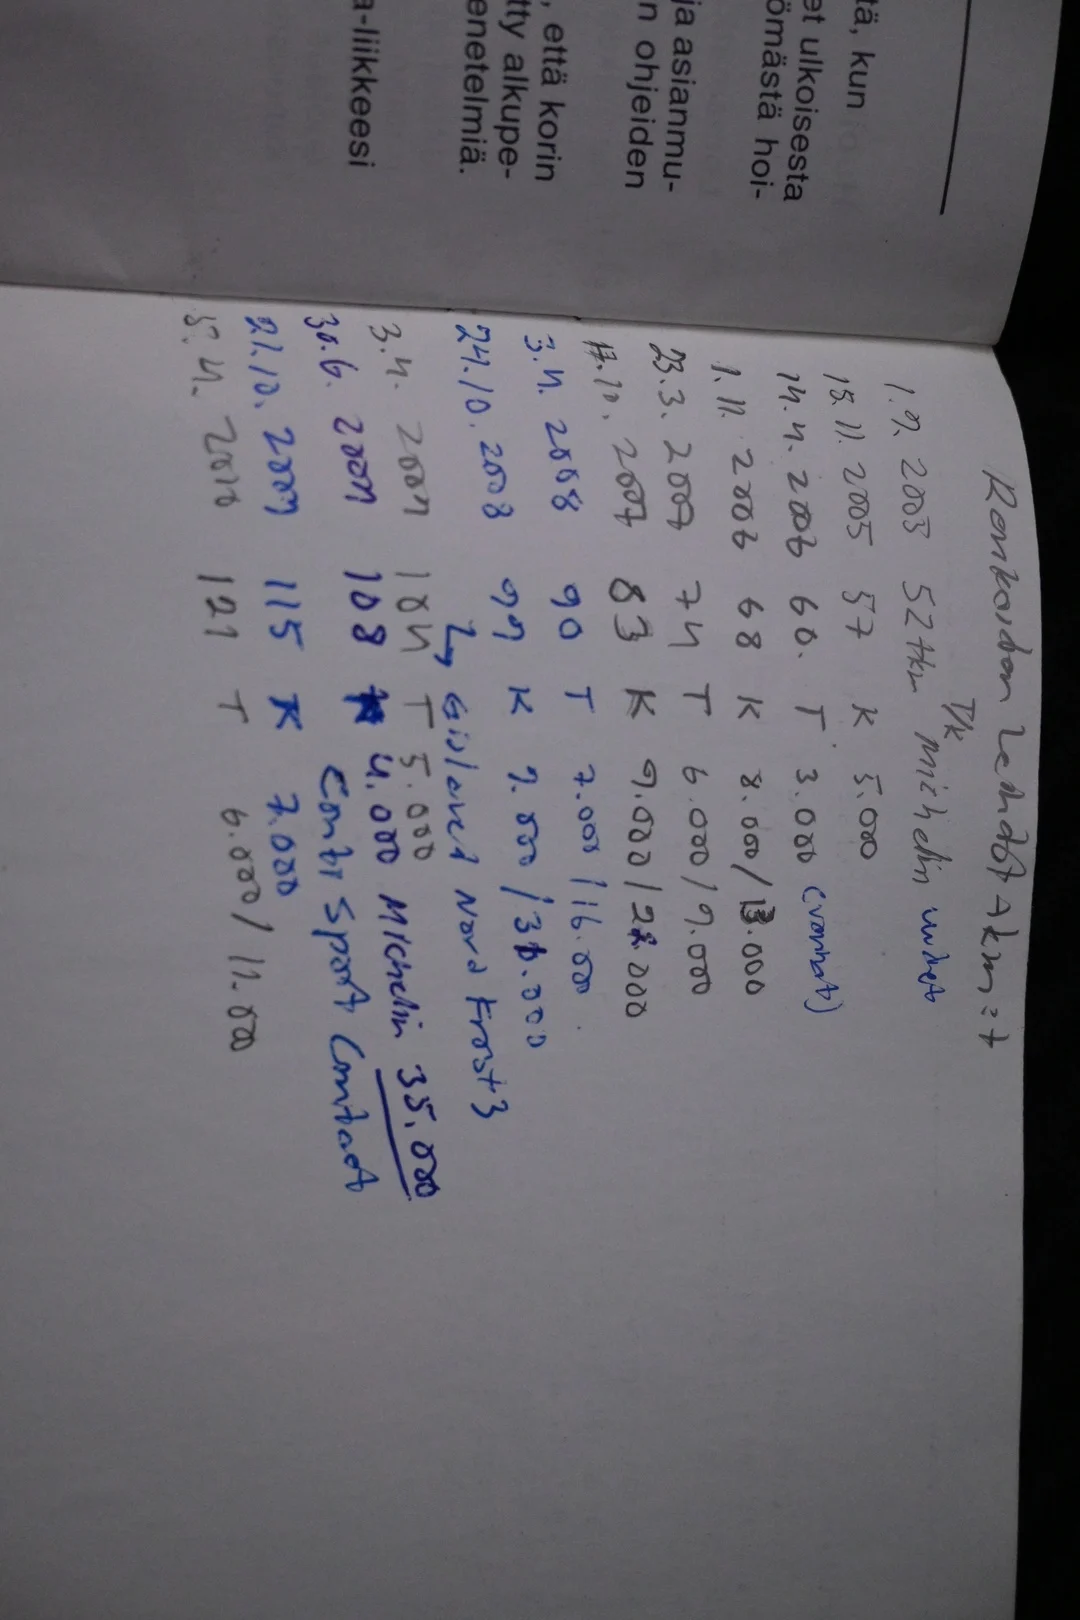 tä, kun
et ulkoisesta
ömästä hoi-
ja asianmu-
n ohjeiden
, että korin
tty alkupe-
enetelmiä.
a-liikkeesi
T/k
1.9. 2005 52 tkm michelin uudet
15.11. 2005 57 K 5.000
14.4. 2006 60. T 3.000 (vanhat)
1.11. 2006 68 K 8.000/13.000
23.3. 2007 74 T 6.000/9.000
17.10. 2007 83 K 9.000/22.000
3.4. 2008 90 T 7.000/16.000.
24.10. 2008 99 K 9.000/31.000
↳ Gislaved Nord Frost 3
3.4. 2009 104 T 5.000
30.6. 2009 108 K 4.000 Michelin 35.000
Conti Sport Contact
21.10. 2009 115 K 7.000
5.4. 2010 121 T 6.000/11.000